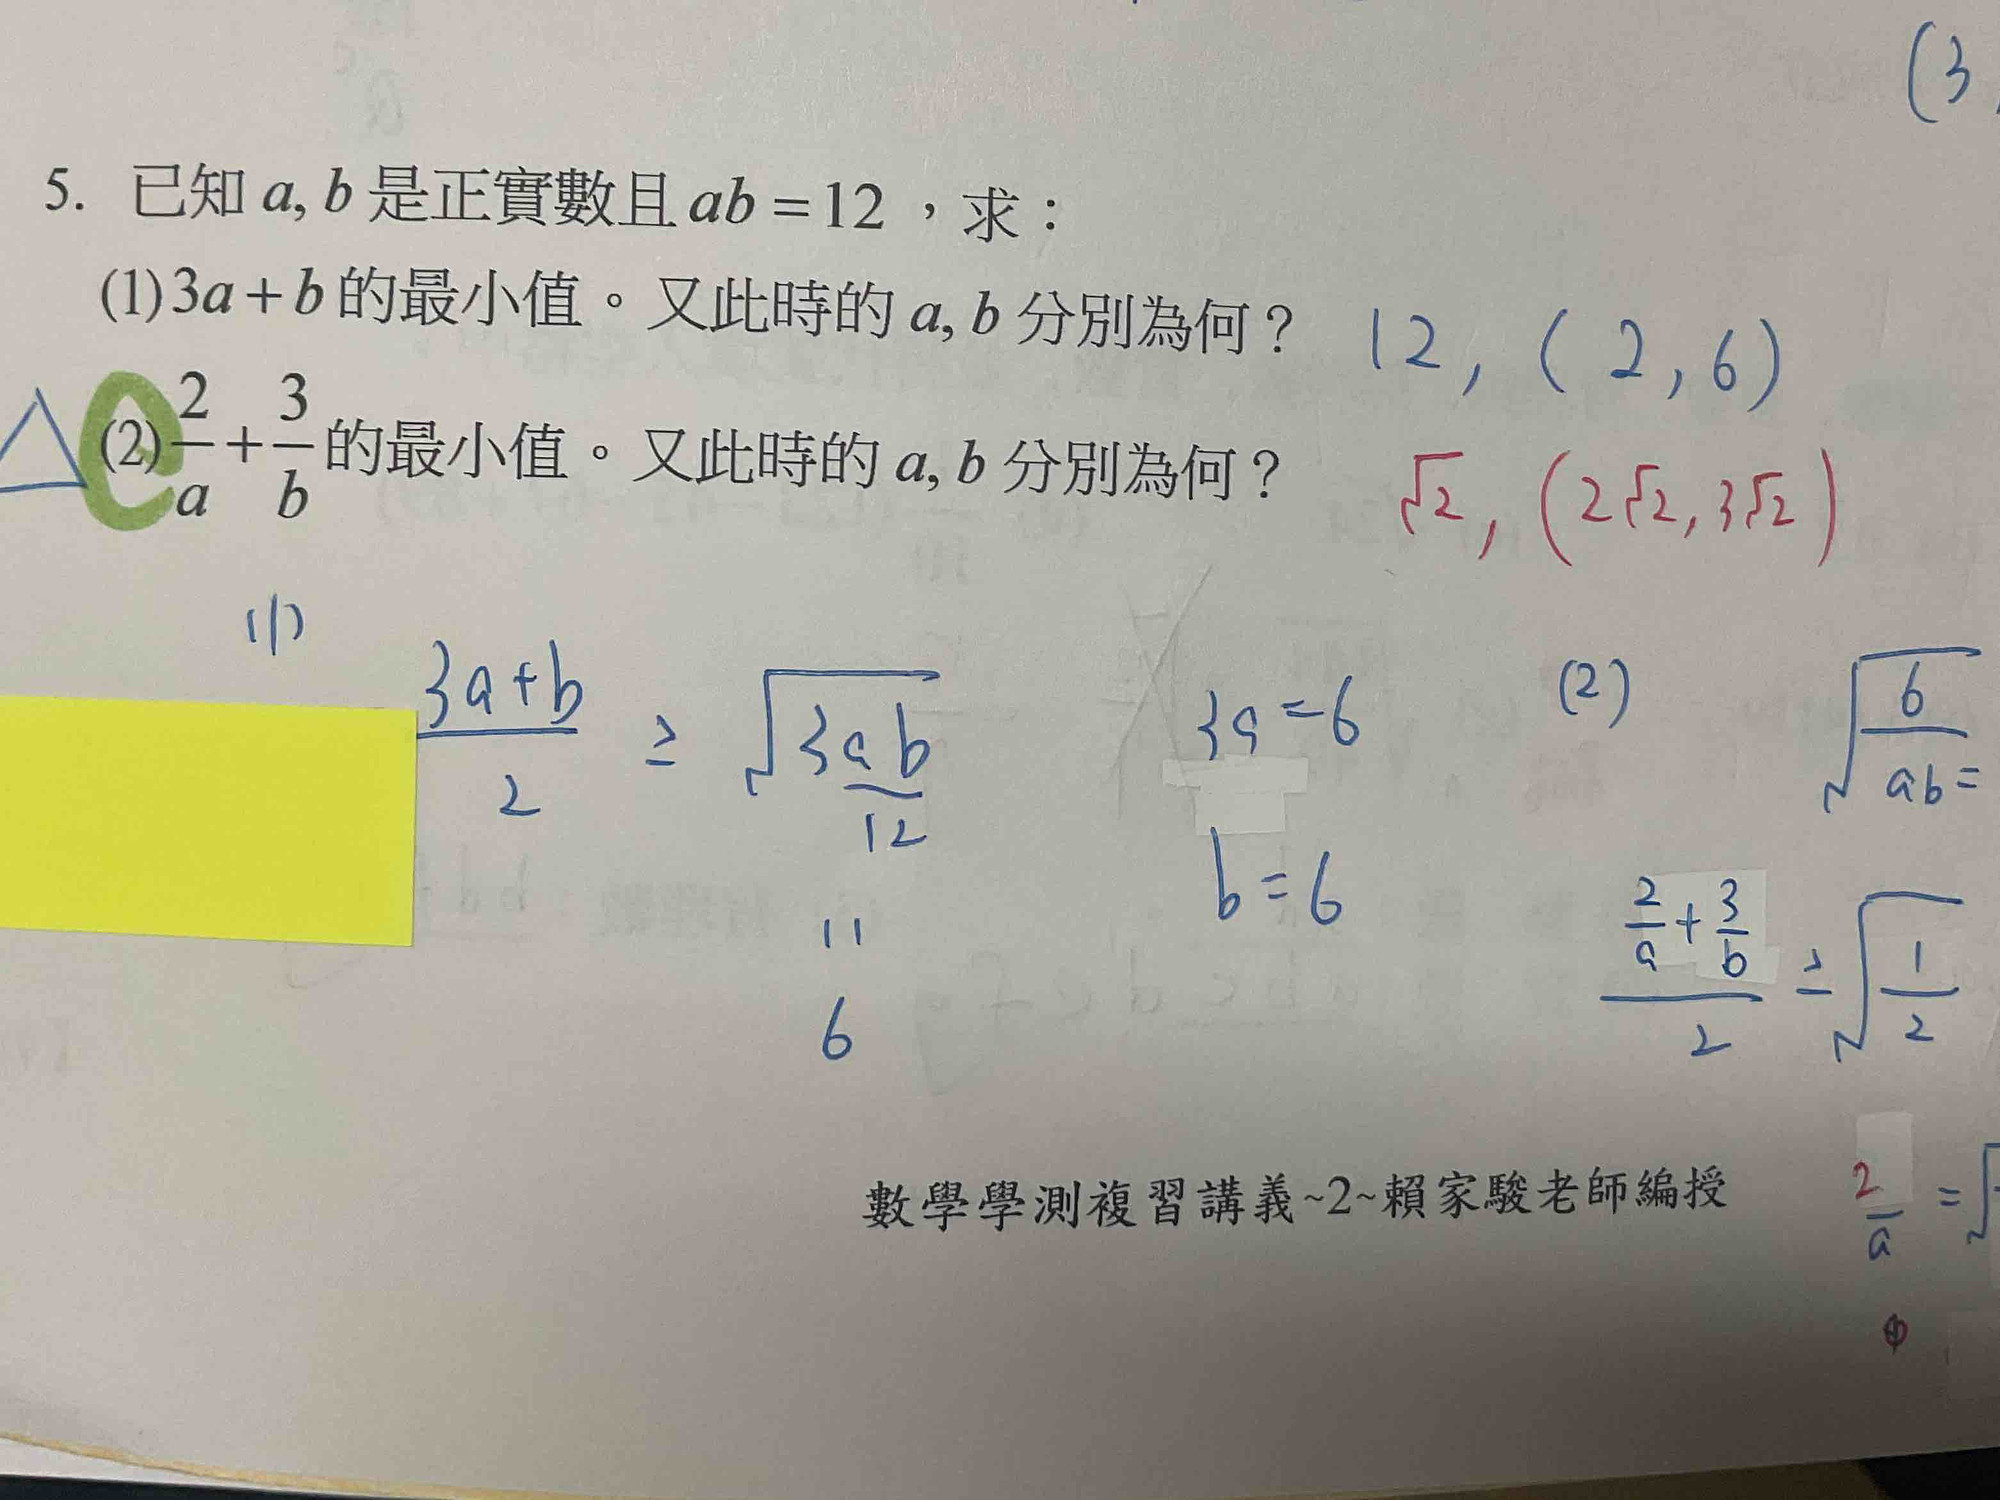 (3,
5. 已知 a, b 是正實數且 ab = 12 ，求：
(1) 3a + b 的最小值。又此時的 a, b 分別為何？ 12, (2,6)
(2) 2/a + 3/b 的最小值。又此時的 a, b 分別為何？ √2, (2√2, 3√2)
(1)
(3a+b)/2 ≥ √3ab
12
11
6
3a=6
b=6
(2)
√6/ab=
(2/a+3/b)/2 ≥ √1/2
2/a = √
數學學測複習講義~2~賴家駿老師編授